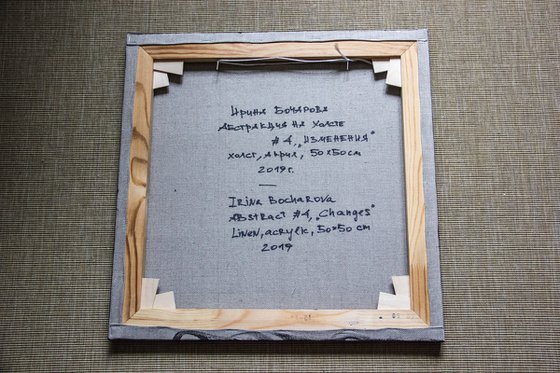 Ирина Бочарова
Абстракция на холсте
#4, „Изменения"
холст, акрил, 50x50 см
2019г.
Irina Bocharova
Abstract #4, „Changes"
Linen, acrylic, 50×50 cm
2019